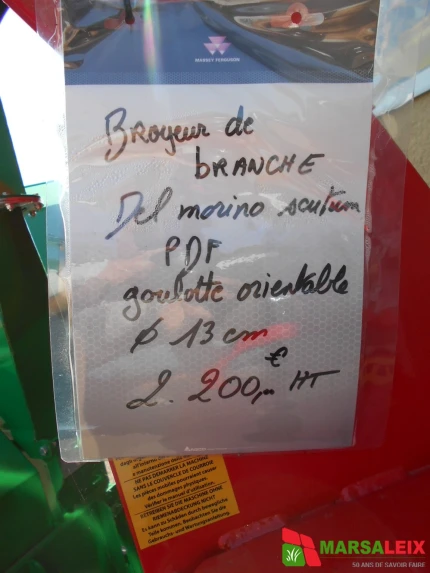 MASSEY FERGUSON
Broyeur de
bRANCHE
Del morino scutum
PDF
goulotte orientable
ø 13 cm
2.200,00 € HT
NE PAS DÉMARRER LA MACHINE
SANS LE COUVERCLE DE COURROIE
MARSALEIX
50 ANS DE SAVOIR FAIRE